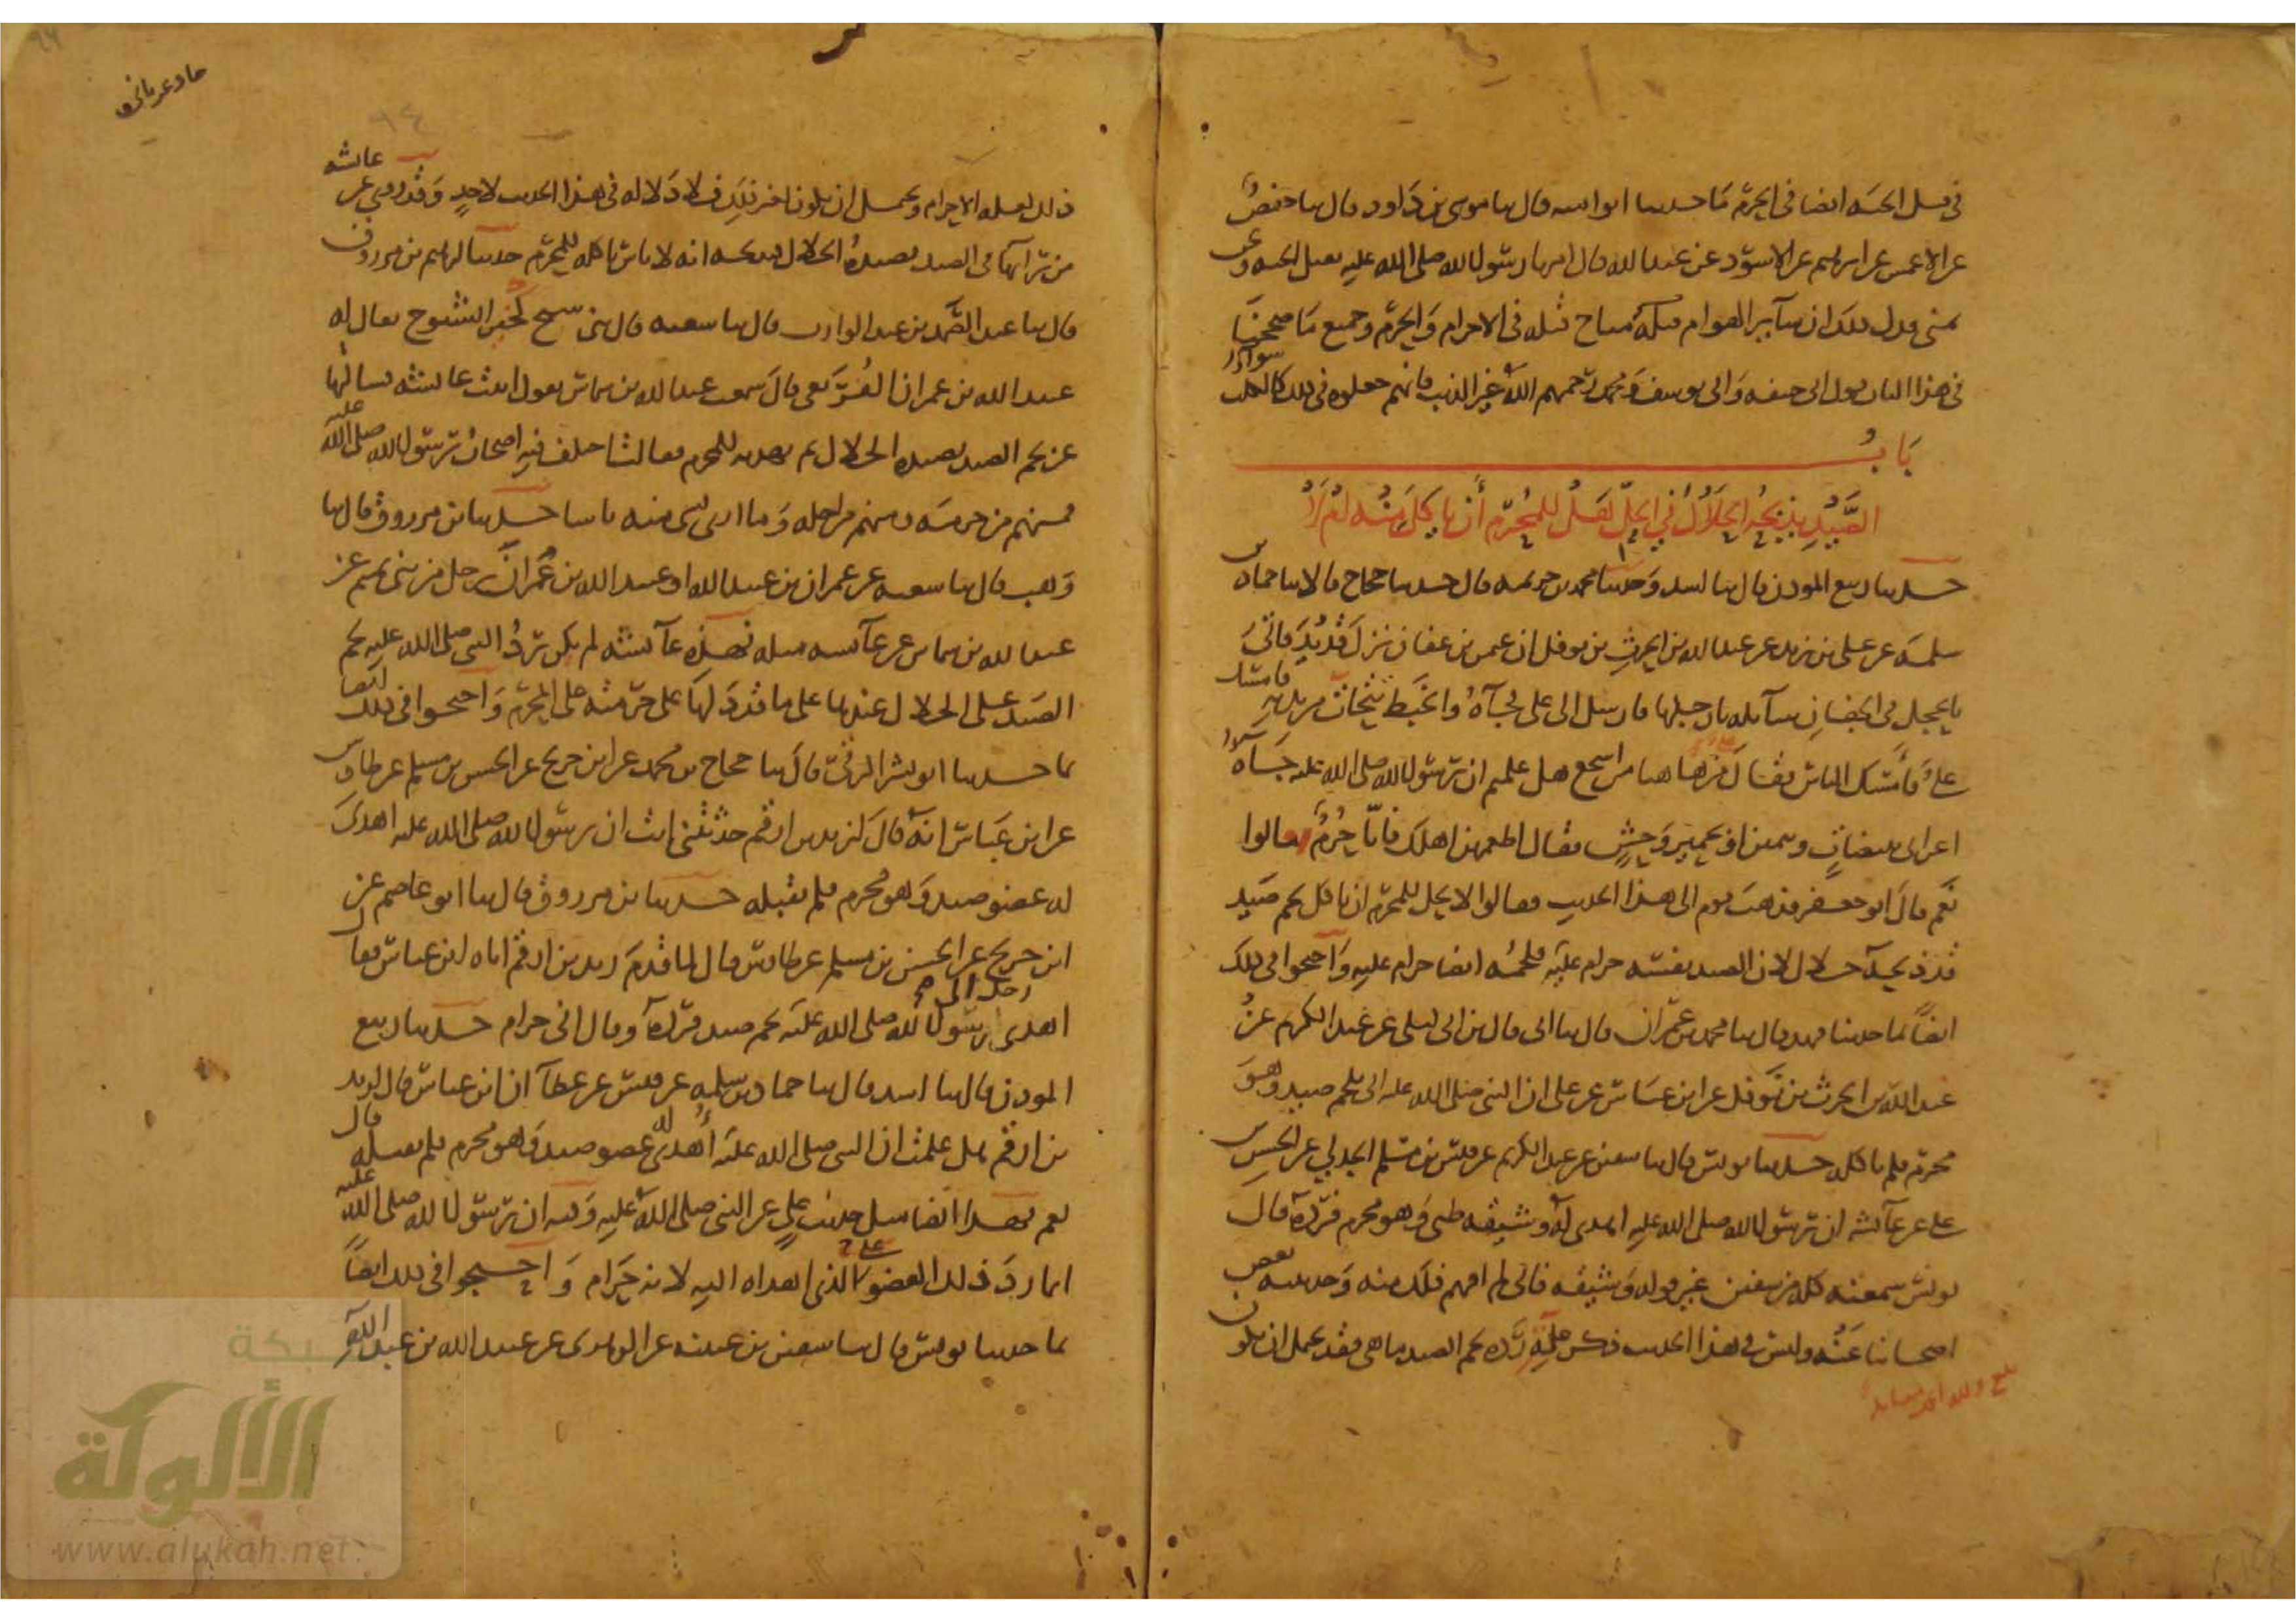 في قتل الحية ايضا في الحرم ما حدثنا ابو اميه قال ثنا موسى بن داود قال ثنا حفص
عن الاعمش عن ابرهيم عن الاسود عن عبد الله قال امرنا رسول الله صلى الله عليه بقتل الحيه ونحن
بمنى فدل ذلك ان سآير الهوام قتله مباح قتله في الاحرام والحرم وجميع ما صححنا
في هذا الباب قول ابي حنيفه وابي يوسف ومحمد رحمهم الله غير الذيب فانهم جعلوه في ذلك كالكلب سواء
باب
الصيد يذبحه الحلال في الحل هل للمحرم أن ياكل منه ام لا
حدثنا ربيع المودن قال ثنا اسد وحدثنا محمد بن خزيمه قال حدثنا حجاج قالا ثنا حماد بن
سلمة عن علي بن زيد عن عبد الله بن الحرث بن نوفل ان عثمن بن عفان نزل قديد فاتي
بالحجل في الجفان شآيله بارجلها فارسل الى علي فجآه والخبط يتحات من يديه فامسك
علي فأمسك الناس فقال من هاهنا من اشجع هل علمتم ان رسول الله صلى الله عليه جآه
اعرابي ببيضات وتتمير وحش فقال اطعمهن اهلك فانا حرم قالوا
نعم قال ابو جعفر فذهب قوم الى هذا الحديث فقالوا لا يحل للمحرم ان ياكل لحم صيد
قد ذبحه حلال لان الصيد نفسه حرام عليه فلحمه ايضا حرام عليه واحتجوا في ذلك
ايضا بما حدثنا فهد قال ثنا محمد بن عمران قال ثنا ابي قال بن ابي ليلى عن عبد الكريم عن
عبد الله بن الحرث بن نوفل عن ابن عباس عن علي ان النبي صلى الله عليه اتي بلحم صيد وهو
محرم فلم ياكله حدثنا يونس قال ثنا سفين عن عبد الكريم عن قيس بن مسلم الجدلي عن الحسن بن
علي عن عآئشه ان رسول الله صلى الله عليه اهدى له وشيقه ظبي وهو محرم فرده قال
يونس سمعته كله من سفين غير قوله وشيقه فاني لم افهم ذلك منه وحدثنيه بعض
اصحابنا عنه وليس في هذا الحديث ذكر علة رده لحم الصيد ما هي فقد يحتمل ان يكون
بلغ ولله الحمد مقابلة
ذلك لعلة الاحرام ويحتمل ان يكون لغير ذلك فلا دلاله في هذا الحديث لاحد وقد روي عن عائشه
من رايها في الصيد يصيده الحلال فيذبحه انه لا باس باكله للمحرم حدثنا ابرهيم بن مرزوق
قال ثنا عبد الصمد بن عبد الوارث قال ثنا شعبه قال ثني شيخ يقال له
عبيد الله بن عمران القريعي قال سمعت عبد الله بن شماس يقول اتيت عائشه فسالتها
عن لحم الصيد يصيده الحلال ثم يهديه للمحرم فقالت اختلف فيه اصحاب رسول الله صلى الله عليه
فمنهم من حرمه ومنهم من احله وما ارى بشى منه باسا حدثنا بن مرزوق قال ثنا
وهب قال ثنا شعبه عن عمران بن عبيد الله او عبيد الله بن عمران رجل من بني تميم عن
عبد الله بن شماس عن عآئشه مثله فهذه عآئشه لم يكن ترد النبي صلى الله عليه لحم
الصيد على الحلال عندها على ما قد دلها على حرمته على المحرم واحتجوا في ذلك ايضا
بما حدثنا ابو بشر الرقي قال ثنا حجاج بن محمد عن ابن جريج عن الحسن بن مسلم عن طاوس
عن ابن عباس انه قال لزيد بن ارقم حدثتني انت ان رسول الله صلى الله عليه اهدى
له عضو صيد وهو محرم فلم يقبله حدثنا بن مرزوق قال ثنا ابو عاصم عن
ابن جريج عن الحسن بن مسلم عن طاوس قال لما قدم زيد بن ارقم اتاه ابن عباس فقال
اهدى رجل الى رسول الله صلى الله عليه لحم صيد فرده وقال اني حرام حدثنا ربيع
المودن قال ثنا اسد قال ثنا حماد بن سلمه عن قيس عن عطآ ان ابن عباس قال لزيد
بن ارقم هل علمت ان النبي صلى الله عليه أهدي له عضو صيد وهو محرم فلم يقبله قال
نعم فهذا ايضا مثل حديث علي عن النبي صلى الله عليه وفيه ان رسول الله صلى الله عليه
انما رد ذلك العضو على الذي اهداه اليه لانه حرام واحتجوا في ذلك ايضا
بما حدثنا يونس قال ثنا سفين بن عيينه عن الزهري عن عبيد الله بن عبد الله
شبكة
الألوكة
www.alukah.net